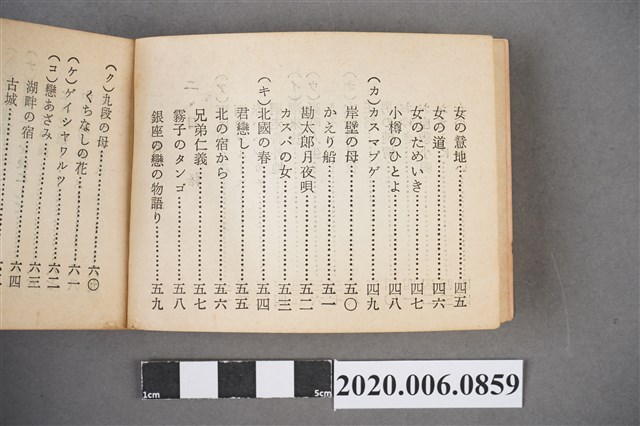 女の意地……四五
女の道……四六
女のためいき……四七
小樽のひとよ……四八
(カ)カスマプゲ……四九
岸壁の母……五〇
かえり船……五一
勘太郎月夜唄……五二
カスバの女……五三
(キ)北國の春……五四
君戀し……五五
北の宿から……五六
兄弟仁義……五七
霧子のタンゴ……五八
銀座の戀の物語り……五九
(ク)九段の母……六〇
くちなしの花……六一
(ケ)ゲイシヤワルツ……六二
(コ)戀あざみ……六三
湖畔の宿……六四
古城
1cm
5cm
2020.006.0859